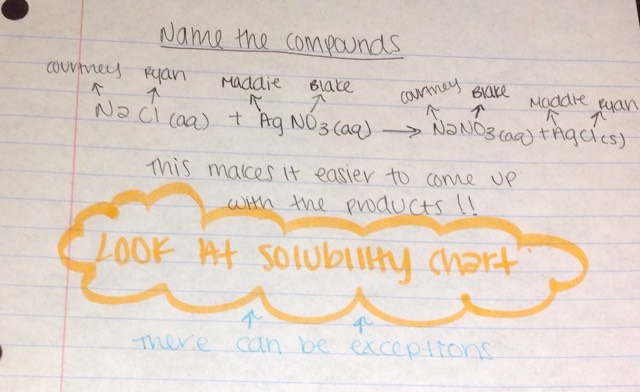 Name the compounds
courtney Ryan Maddie Blake courtney Blake Maddie Ryan
NaCl(aq) + AgNO3(aq) → NaNO3(aq) + AgCl(s)
This makes it easier to come up
with the products !!
LOOK At solubility chart
there can be exceptions